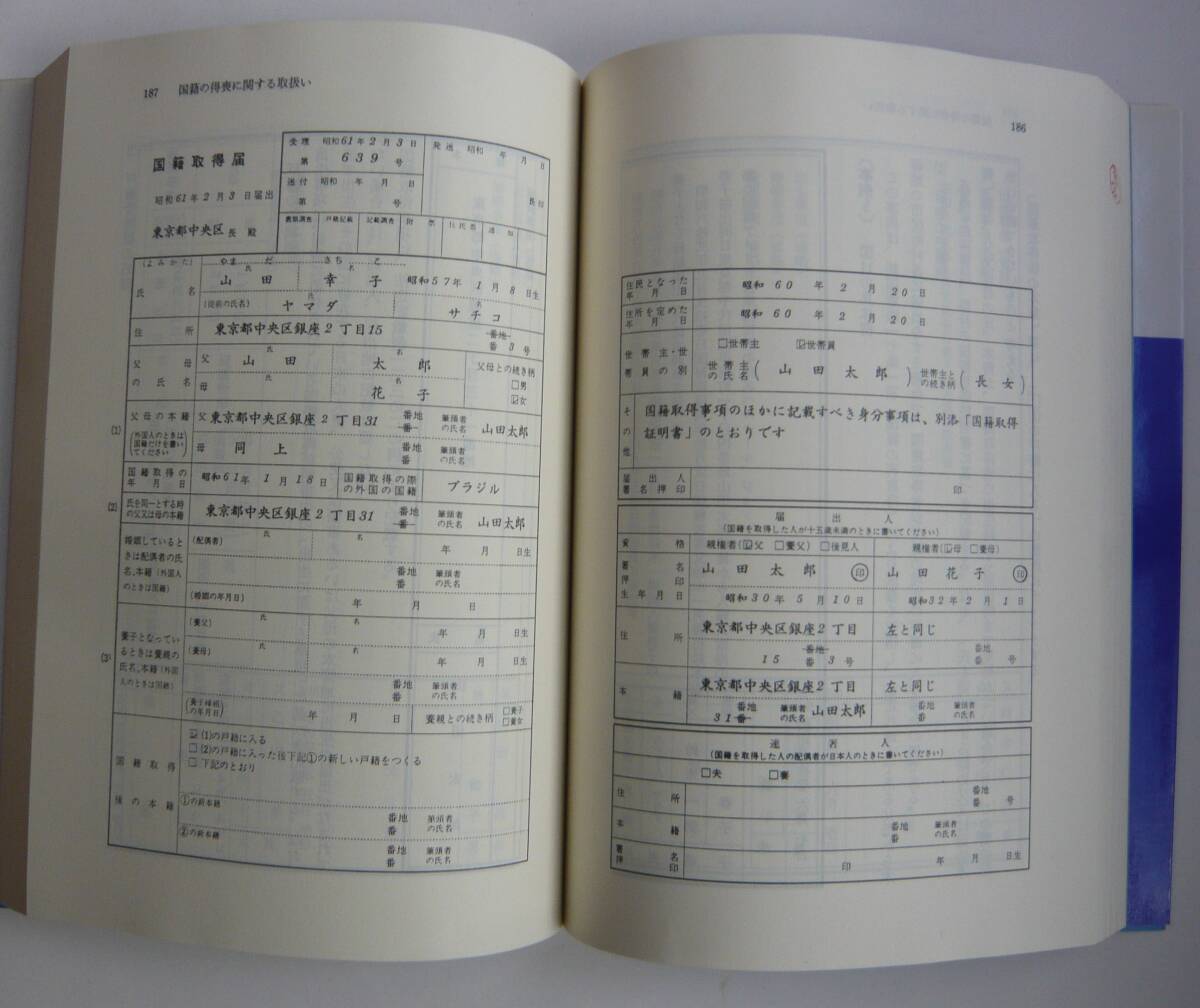 187 国籍の得喪に関する取扱い
国籍取得届
昭和61年2月3日届出
東京都中央区長 殿
受理 昭和61年2月3日
第 639 号
発送 昭和 年 月 日
送付 昭和 年 月 日
第 号
長印
書類調査 戸籍記載 記載調査 附票 住民票 通知
(よみかた) やまだ さちこ
氏 名
氏名 山田 幸子 昭和57年1月8日生
(従前の氏名) 氏 ヤマダ 名 サチコ
住所 東京都中央区銀座2丁目15 番地 番3号
父母の氏名 父 氏 山田 名 太郎 父母との続き柄
□男
母 氏 名 花子 ☑女
(1) 父母の本籍 (外国人のときは国籍だけを書いてください)
父 東京都中央区銀座2丁目31 番地 番 筆頭者の氏名 山田太郎
母 同上 番地 番 筆頭者の氏名
国籍取得の年月日 昭和61年1月18日 国籍取得の際の外国の国籍 ブラジル
(2) 氏を同一とする時の父又は母の本籍 東京都中央区銀座2丁目31 番地 番 筆頭者の氏名 山田太郎
婚姻しているときは配偶者の氏名、本籍(外国人のときは国籍)
(配偶者) 氏 名 年 月 日生
番地 番 筆頭者の氏名
(婚姻の年月日) 年 月 日
(3) 養子となっているときは養親の氏名、本籍(外国人のときは国籍)
(養父) 氏 名 年 月 日生
(養母) 氏 名 年 月 日生
番地 番 筆頭者の氏名
(養子縁組の年月日) 年 月 日 養親との続き柄 □養子 □養女
国籍取得後の本籍
☑(1)の戸籍に入る
□(2)の戸籍に入った後下記①の新しい戸籍をつくる
□下記のとおり
①の新本籍
番地 番 筆頭者の氏名
②の新本籍
番地 番 筆頭者の氏名
186
住民となった年月日 昭和60年2月20日
住所を定めた年月日 昭和60年2月20日
世帯主・世帯員の別 □世帯主 ☑世帯員
世帯主の氏名(山田太郎) 世帯主との続き柄(長女)
その他 国籍取得事項のほかに記載すべき身分事項は、別添「国籍取得
証明書」のとおりです
届出人署名押印 印
届出人
(国籍を取得した人が十五歳未満のときに書いてください)
資格 親権者(☑父 □養父) □後見人 親権者(☑母 □養母)
署名押印 山田太郎 ㊞ 山田花子 ㊞
生年月日 昭和30年5月10日 昭和32年2月1日
住所 東京都中央区銀座2丁目 左と同じ
15 番地 番3号 番地 番 号
本籍 東京都中央区銀座2丁目 左と同じ
31 番地 番 筆頭者の氏名 山田太郎 番地 番 筆頭者の氏名
連署人
(国籍を取得した人の配偶者が日本人のときに書いてください)
□夫 □妻
住所 番地 番 号
本籍 番地 番 筆頭者の氏名
署名押印 印 年 月 日生